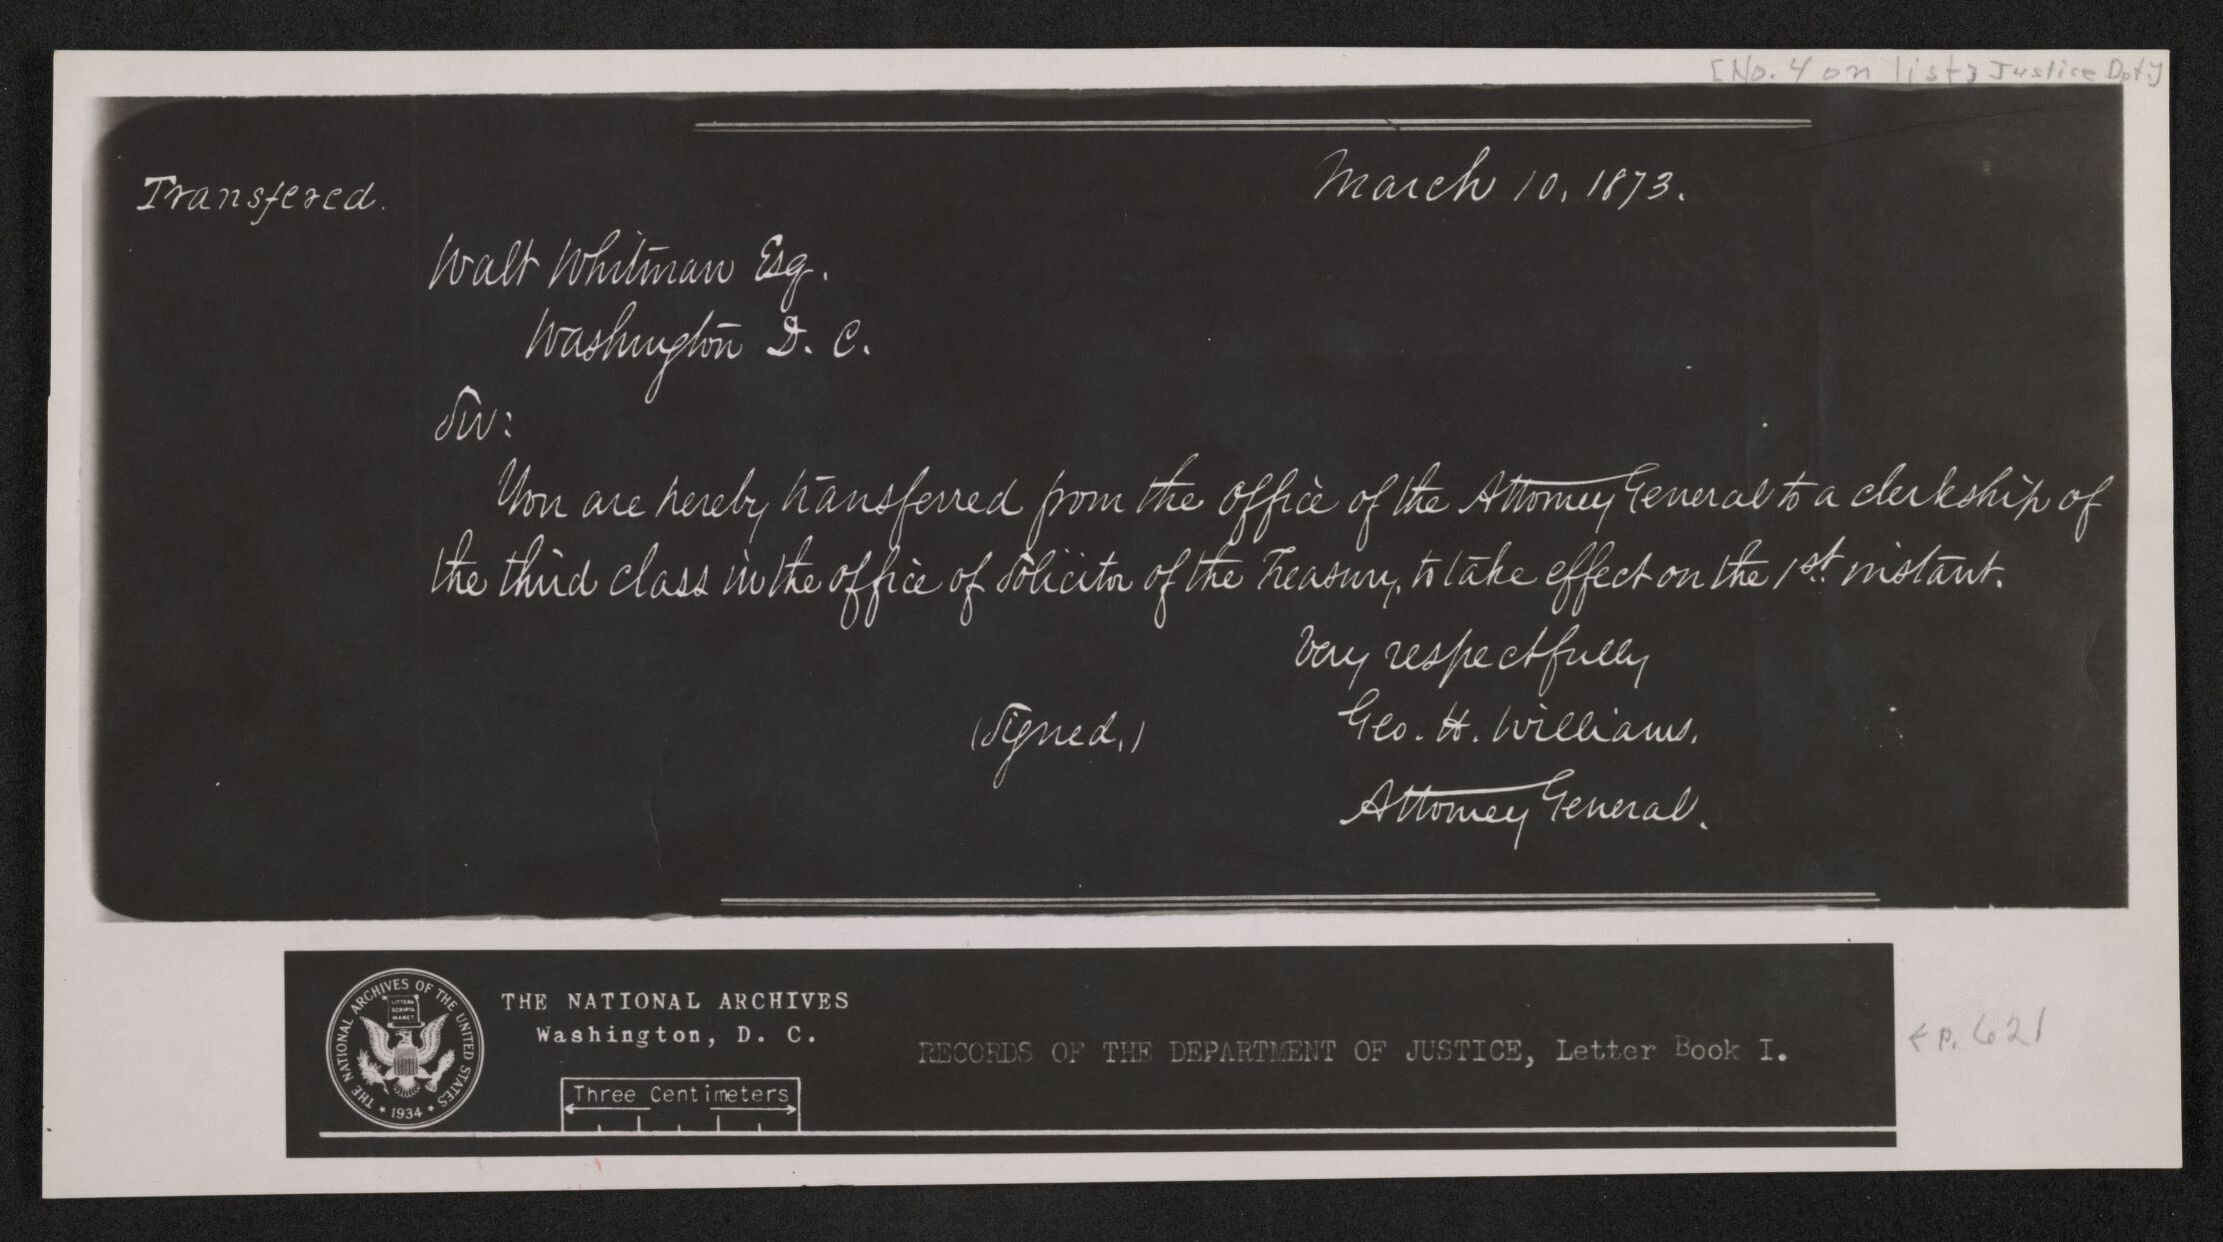 [No. 4 on list] Justice Dpt]
March 10, 1873.
Transfered.
Walt Whitman Esq.
Washington D. C.
Sir:
You are hereby transferred from the office of the Attorney General to a clerkship of
the third class in the office of Solicitor of the Treasury, to take effect on the 1st. instant.
Very respectfully
(Signed,) Geo. H. Williams.
Attorney General.
THE NATIONAL ARCHIVES OF THE UNITED STATES
LITTERA
SCRIPTA
MANET
* 1934 *
THE NATIONAL ARCHIVES
Washington, D. C.
Three Centimeters
RECORDS OF THE DEPARTMENT OF JUSTICE, Letter Book I.
p. 621